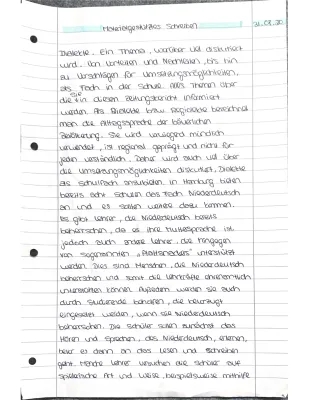 Materialgestütztes Schreiben
Dialekte. Ein Thema, worüber viel diskutiert
wird. Von Vorteilen und Nachteilen, bis hin
zu Vorschlägen für Umsetzungsmöglichkeiten,
als Fach in der Schule. Alles Themen über
die Sie in diesem Zeitungsbericht informiert
werden. Als Dialekte bzw. Regiolekte bezeichnet
man die Alltagssprache der
Bevölkerung. Sie wird vorwiegend mündlich
verwendet, ist regional geprägt und nicht für
jeden verständlich. Daher wird auch viel über
die Umsetzungsmöglichkeiten diskutiert, Dialekte
als Schulfach anzubieten. In Hamburg bieten
bereits acht Schulen das Fach Niederdeutsch
an und es sollen weitere dazu kommen.
Es gibt Lehrer, die Niederdeutsch bereits
beherrschen, da es ihre Muttersprache ist
jedoch auch andere Lehrer, die hingegen
von sogenannten
werden. Dies sind Menschen, die Niederdeutsch
beherrschen und somit die Lehrkräfte ehrenamtlich
unterstützen können. Außerdem werden sie auch
durch Studierende, die bevorzugt
eingesetzt werden, wenn sie Niederdeutsch
beherrschen. Die Schüler sollen zunächst das
Hören und Sprechen, des Niederdeutsch, erlernen,
bevor es dann an das Lesen und Schreiben
geht. Manche Lehrer versuchen die Schüler auf
spielerische Art und Weise, beispielsweise mithilfe